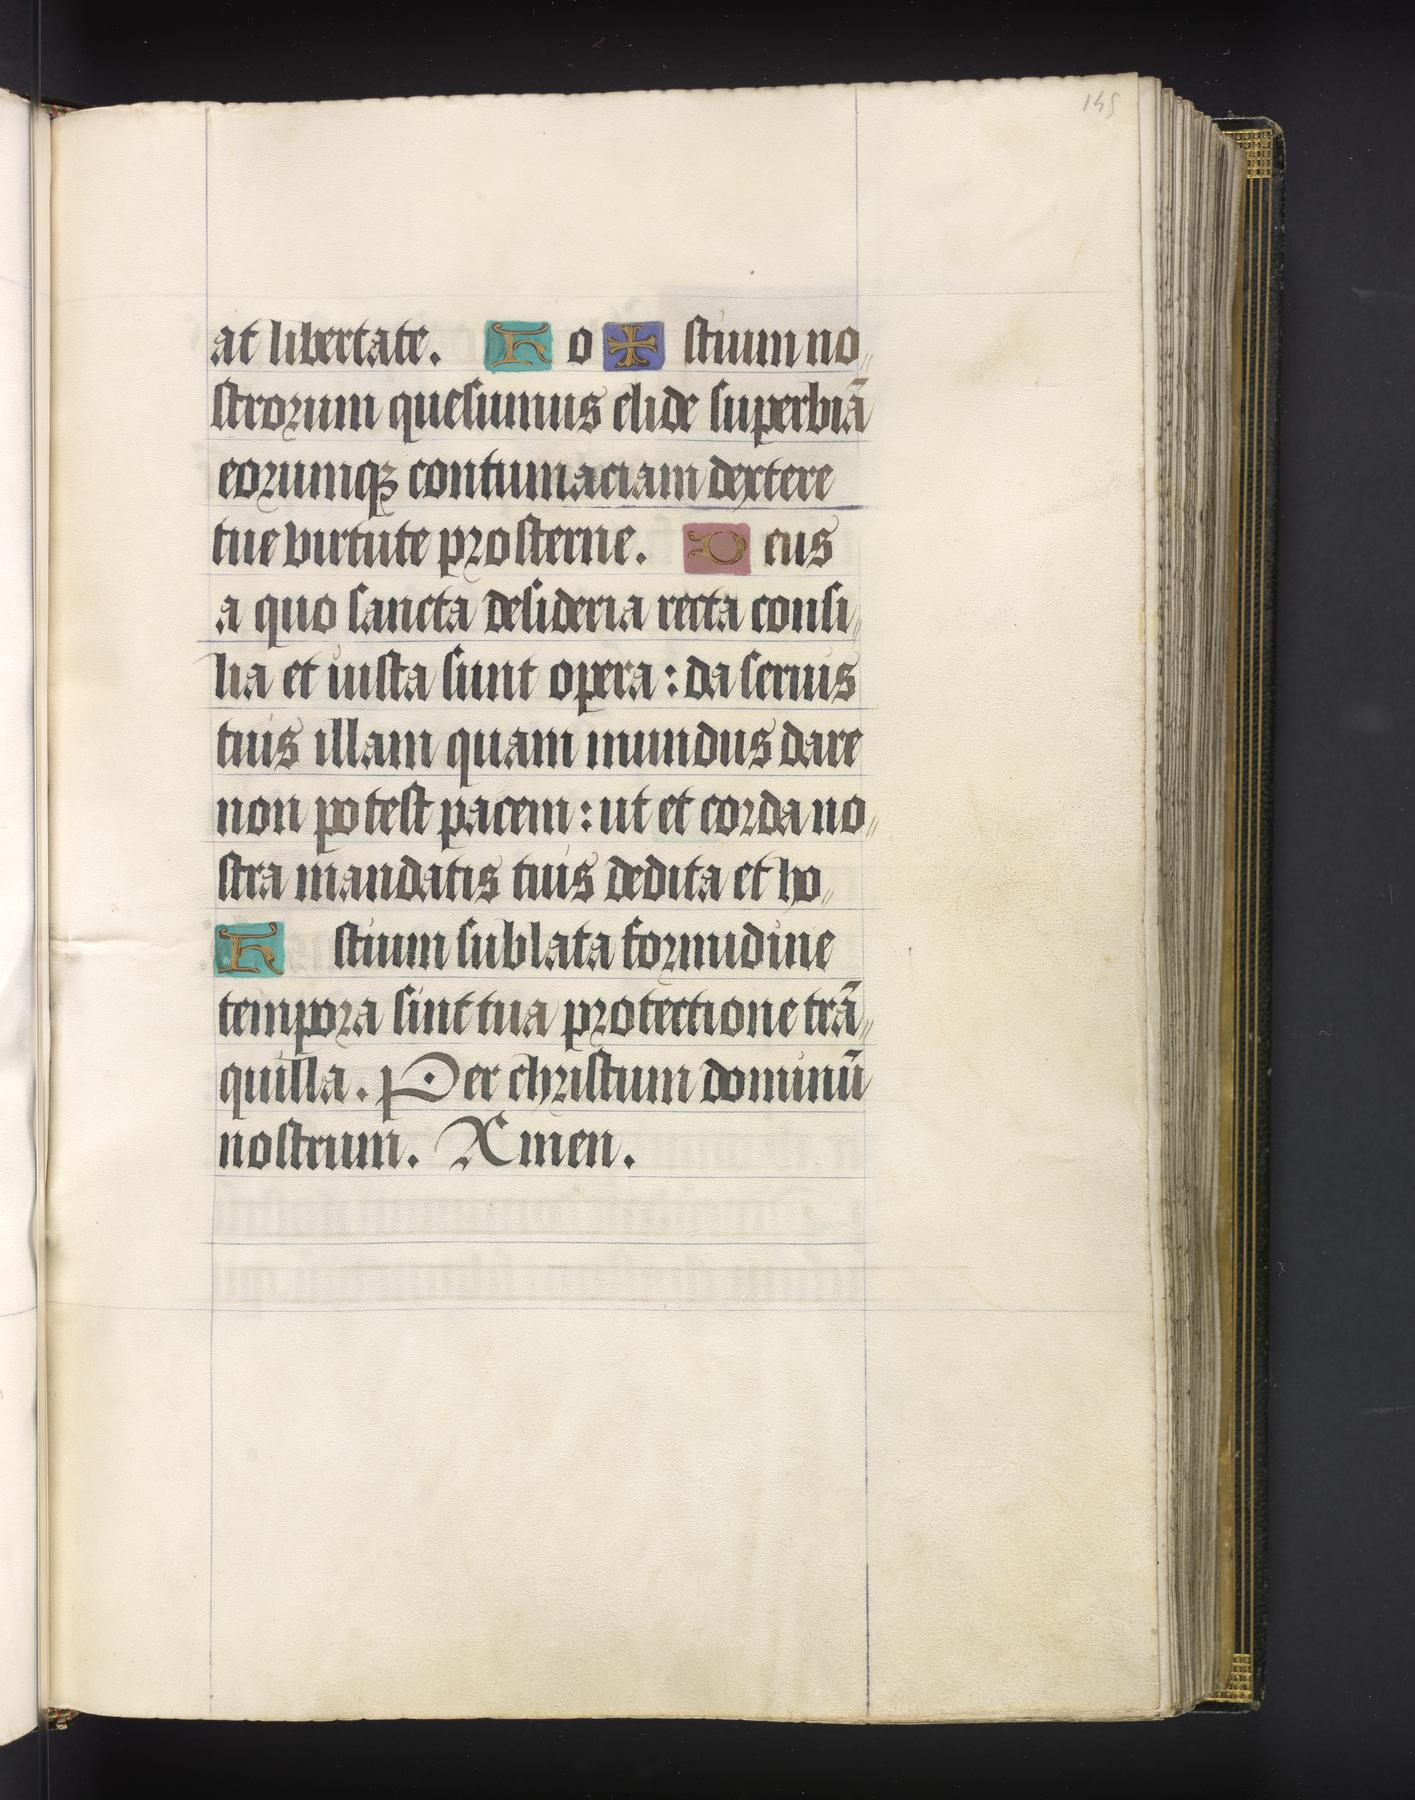 145
at libertate. H o ✠ stium no„
strorum quesumus elide superbiã
eorumqꝫ contumaciam dextere
tue virtute prosterne. Deus
a quo sancta desideria recta consi„
lia et iusta sunt opera : da seruis
tuis illam quam mundus dare
non potest pacem : ut et corda no„
stra mandatis tuis dedita et ho„
H stium sublata formidine
tempora sint tua protectione trã„
quilla. Per christum dominũ
nostrum. Amen.